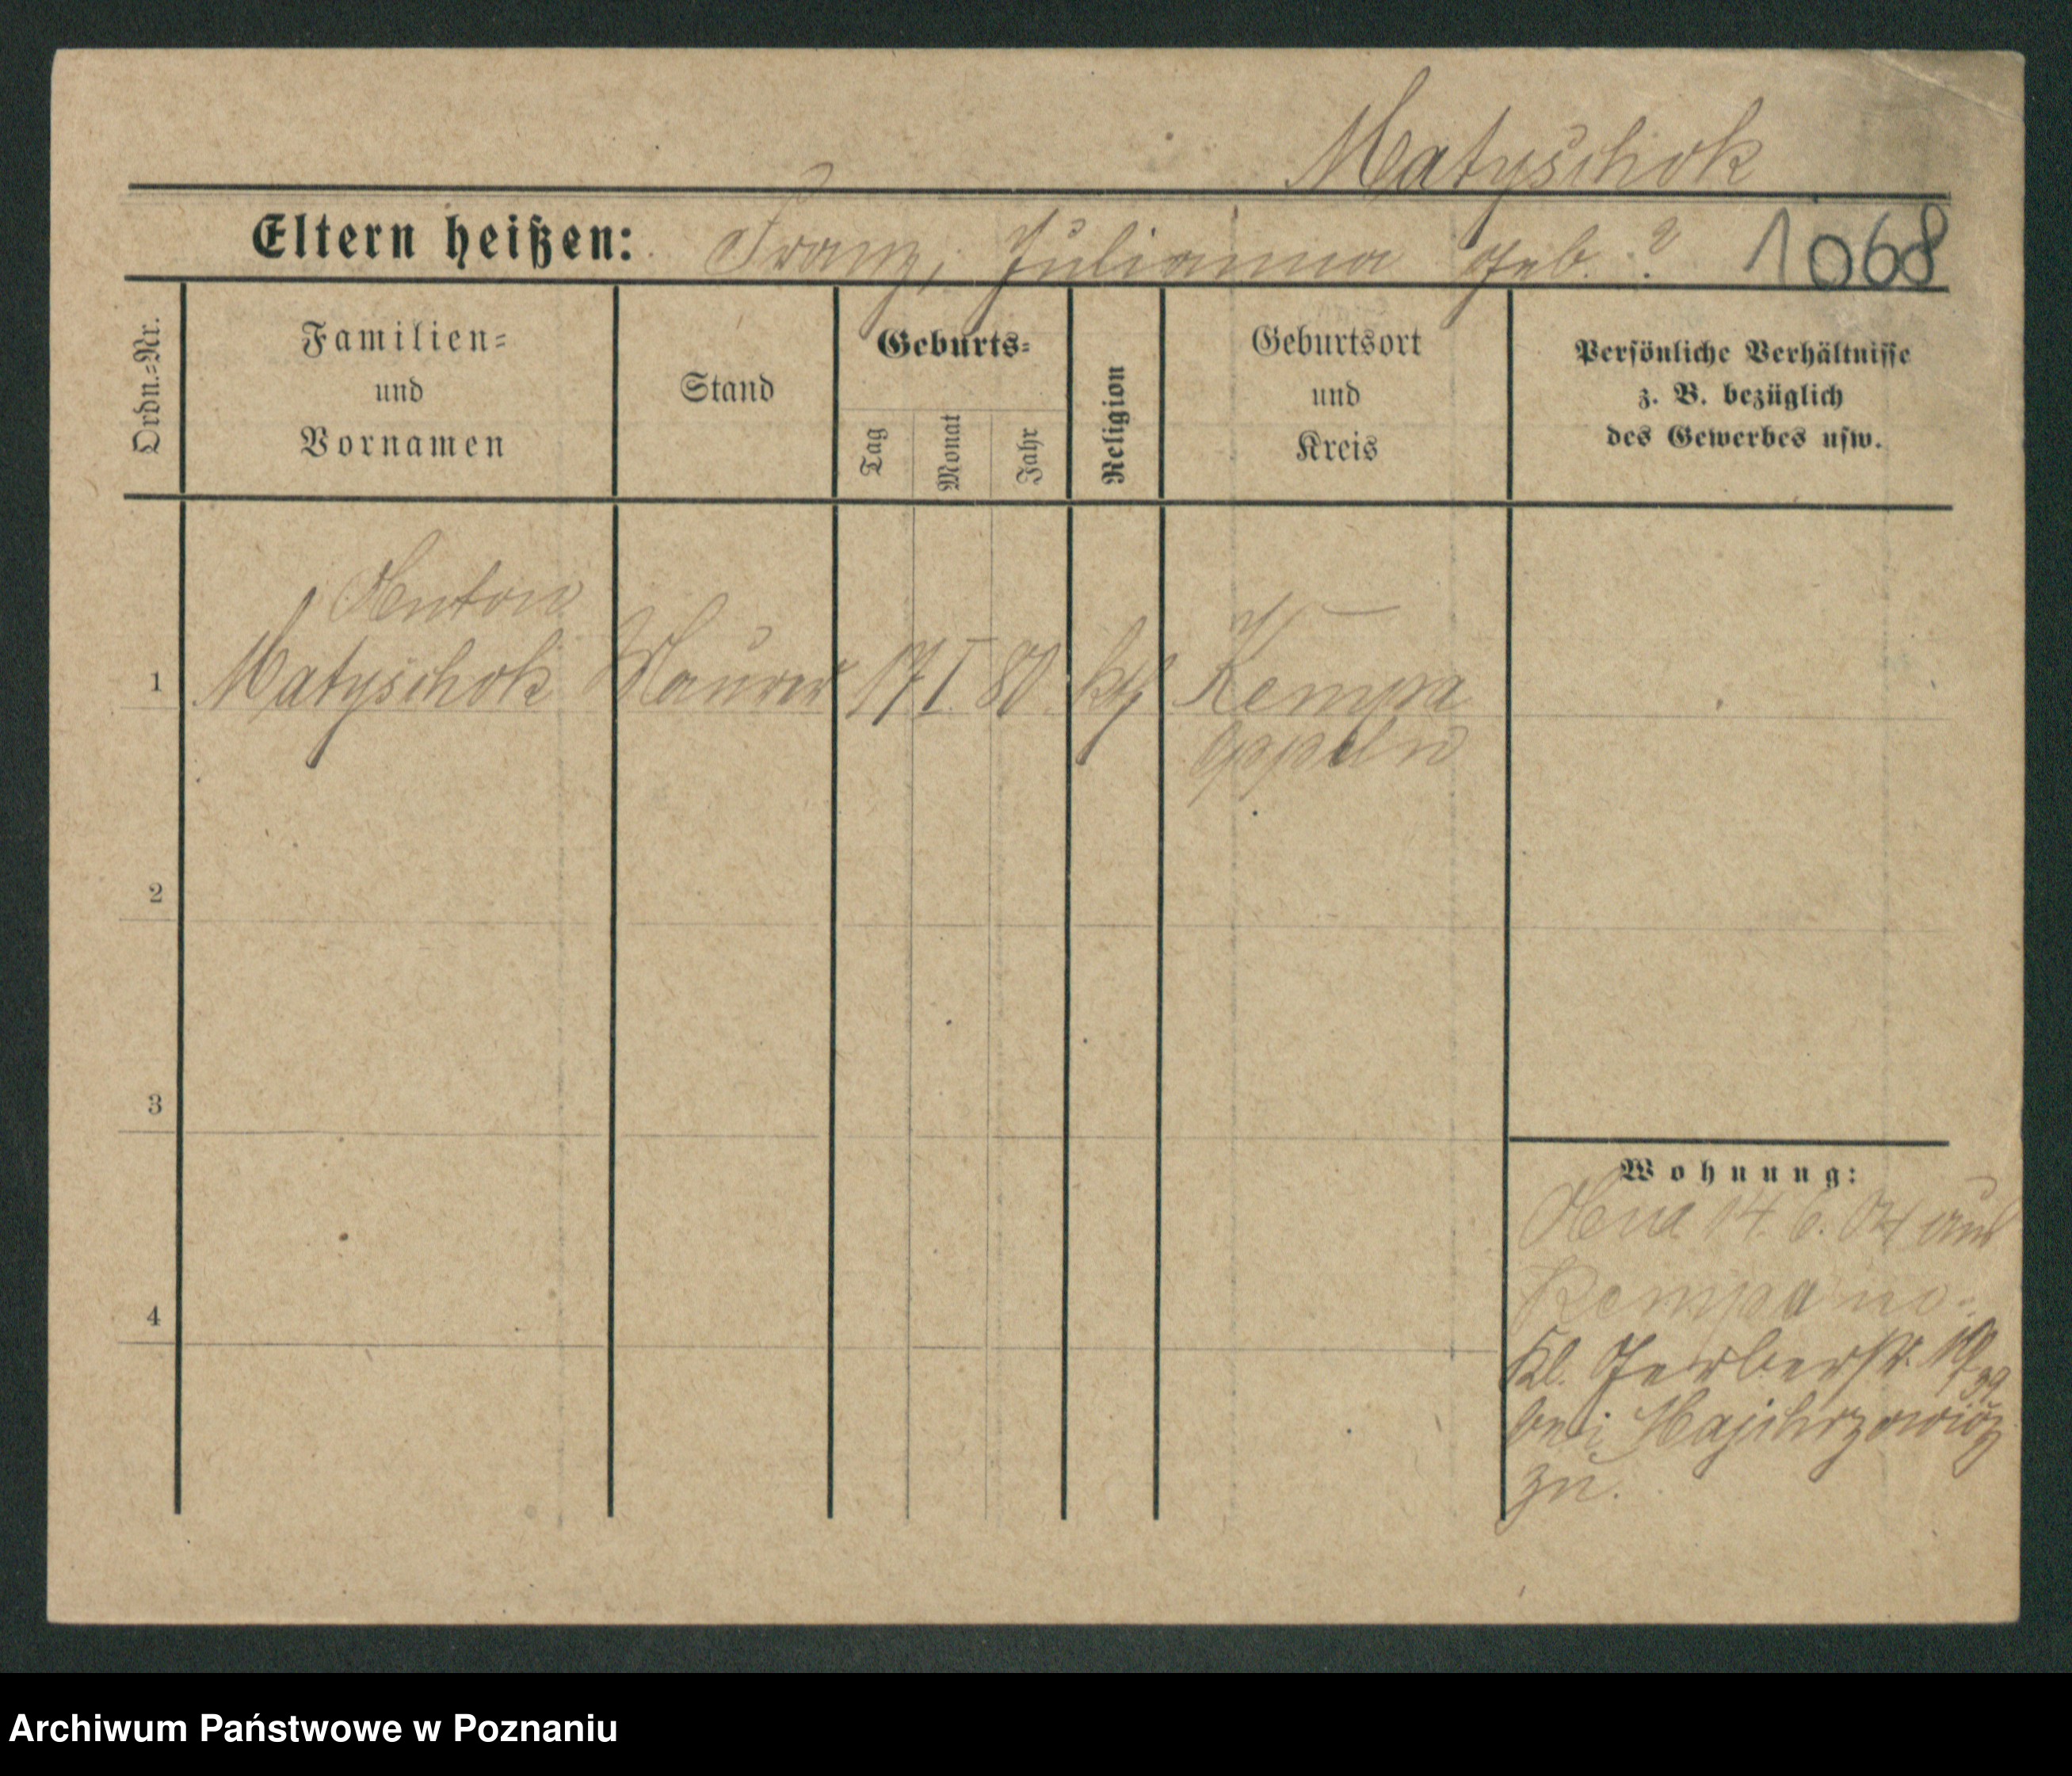 Matyschok
Eltern heißen: Franz, Julianna geb. ? 1068
Ordn.-Nr.
Familien-
und
Vornamen
Stand
Geburts-
Tag
Monat
Jahr
Religion
Geburtsort
und
Kreis
Persönliche Verhältnisse
z. B. bezüglich
des Gewerbes usw.
Anton
1 Matyschok Maurer 17 I. 80 kth Kempa
Oppeln
2
3
4
Wohnung:
14. 6. 04 aus
Kempa
Kl. Gerberstr.
bei
zu.
Archiwum Państwowe w Poznaniu